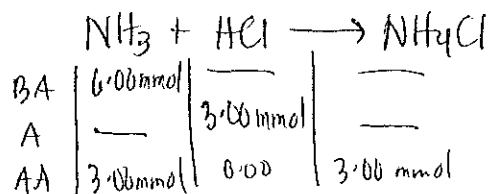 NH3 + HCl → NH4Cl
BA | 6.00 mmol | — | —
A | — | 3.00 mmol | —
AA | 3.00 mmol | 0.00 | 3.00 mmol